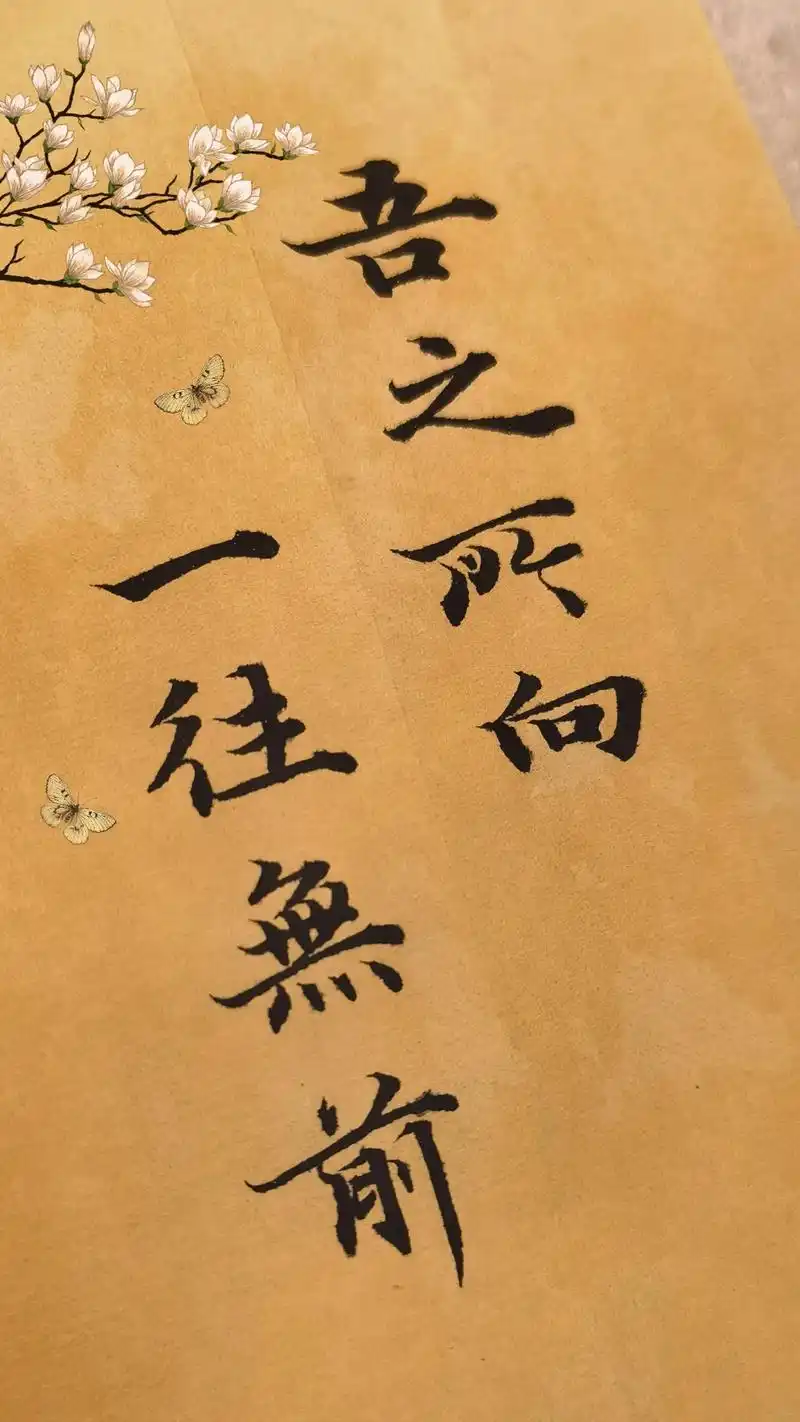 吾之所向
一往無前